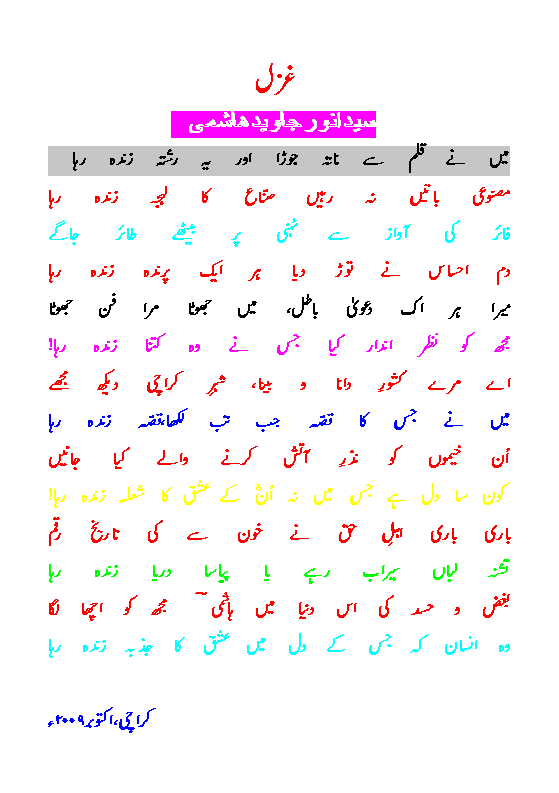 غزل
سید انور جاوید ھاشمی
میں نے قلم سے ناتہ جوڑا اور یہ رشتہ زندہ رہا
مصنوعی باتیں نہ رہیں صنّاع کا لہجہ زندہ رہا
فائر کی آواز سے ٹہنی پر بیٹھے طائر جاگے
دم احساس نے توڑ دیا ہر ایک پرندہ زندہ رہا
میرا ہر اک دعویٰ باطل، میں جھوٹا مرا فن جھوٹا
مجھ کو نظر انداز کیا جس نے وہ کتنا زندہ رہا!
اے مرے کشورِ دانا و بینا، شہرِ کراچی دیکھ مجھے
میں نے جس کا قصّہ جب تب لکھا،قصّہ زندہ رہا
اُن خیموں کو نذرِ آتش کرنے والے کیا جانیں
کون سا دل ہے جس میں نہ اُنؑ کے عشق کا شعلہ زندہ رہا!
باری باری اہلِ حق نے خون سے کی تاریخ رقم
تشنہ لباں سیراب رہے یا پیاسا دریا زندہ رہا
بغض و حسد کی اس دنیا میں ہاشمی ؔ مجھ کو اچھا لگا
وہ انسان کہ جس کے دل میں عشق کا جذبہ زندہ رہا
کراچی،اکتوبر۲۰۰۹ء